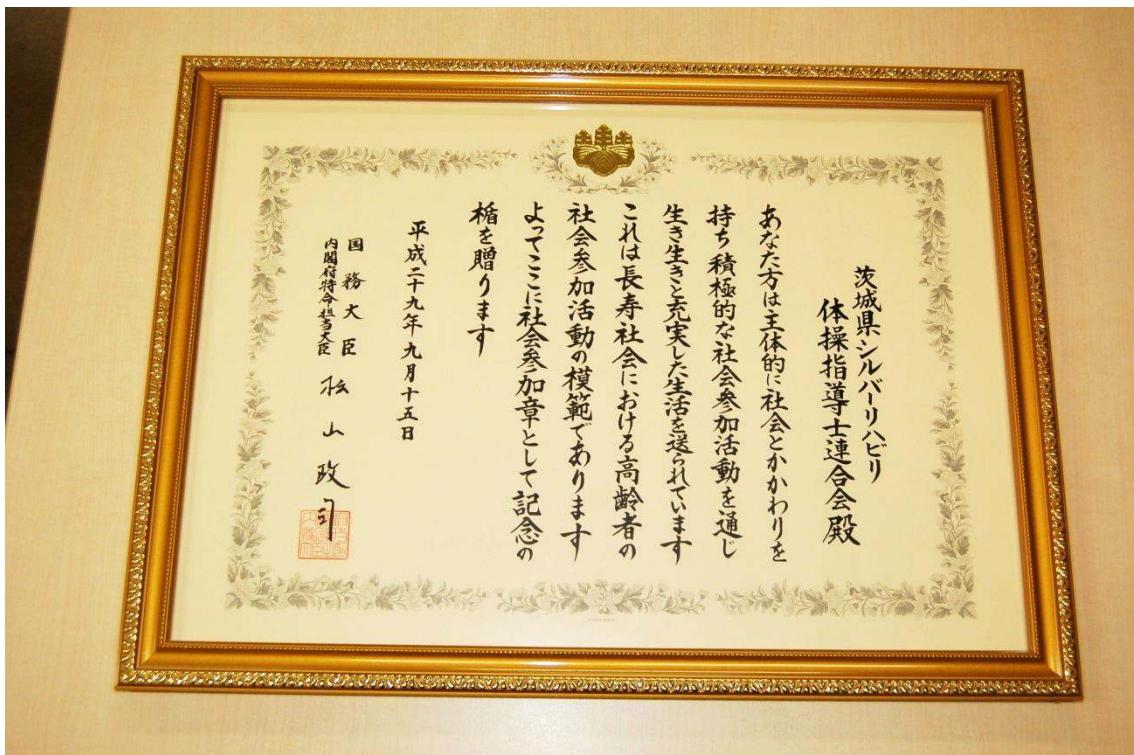 茨城県シルバーリハビリ
体操指導士連合会殿
あなた方は主体的に社会とかかわりを
持ち積極的な社会参加活動を通じ
生き生きと充実した生活を送られています
これは長寿社会における高齢者の
社会参加活動の模範であります
よってここに社会参加章として記念の
楯を贈ります
平成二十九年九月十五日
国務大臣
内閣府特命担当大臣
松山政司